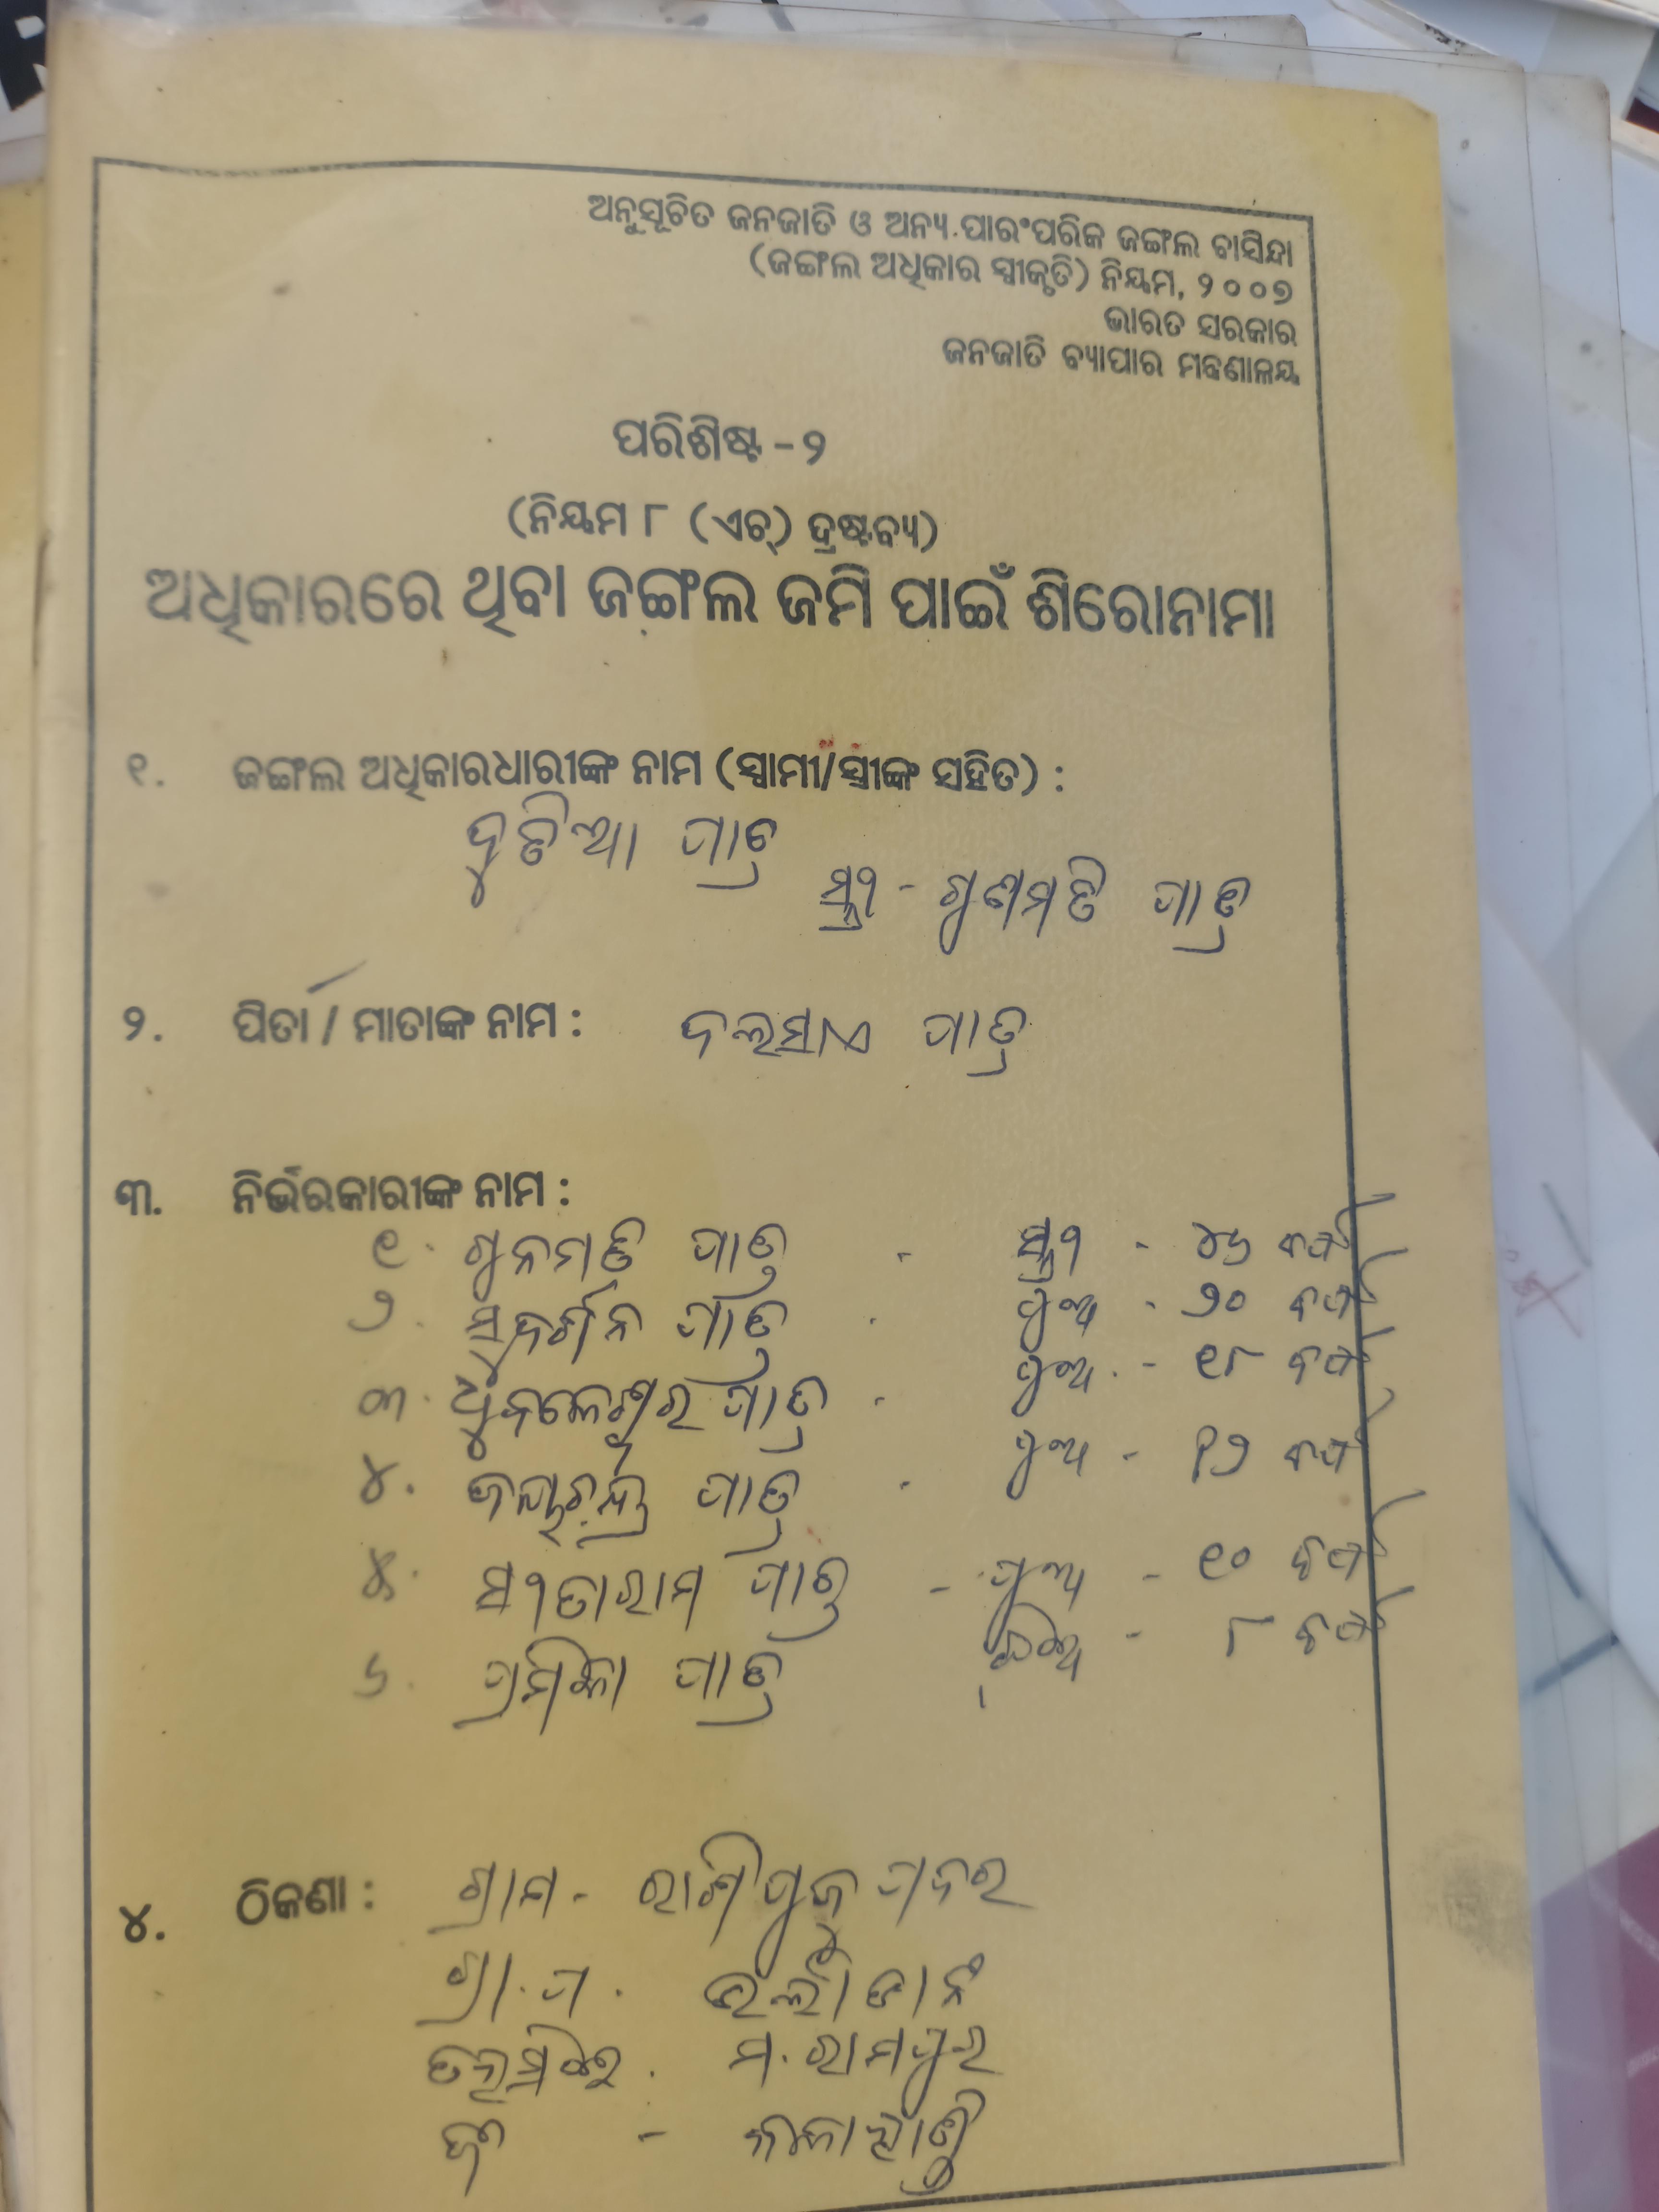 ଅନୁସୂଚିତ ଜନଜାତି ଓ ଅନ୍ୟ ପାରଂପରିକ ଜଙ୍ଗଲ ବାସିନ୍ଦା
(ଜଙ୍ଗଲ ଅଧିକାର ସ୍ୱୀକୃତି) ନିୟମ, ୨୦୦୭
ଭାରତ ସରକାର
ଜନଜାତି ବ୍ୟାପାର ମନ୍ତ୍ରଣାଳୟ
ପରିଶିଷ୍ଟ - ୨
(ନିୟମ ୮ (ଏଚ୍) ଦ୍ରଷ୍ଟବ୍ୟ)
ଅଧିକାରରେ ଥିବା ଜଙ୍ଗଲ ଜମି ପାଇଁ ଶିରୋନାମା
୧. ଜଙ୍ଗଲ ଅଧିକାରଧାରୀଙ୍କ ନାମ (ସ୍ୱାମୀ/ସ୍ତ୍ରୀଙ୍କ ସହିତ) :
ଦୁତିଆ ପାତ୍ର
ସ୍ତ୍ରୀ - ଗୁଣମତି ପାତ୍ର
୨. ପିତା / ମାତାଙ୍କ ନାମ : ଦଲସାଏ ପାତ୍ର
୩. ନିର୍ଭରକାରୀଙ୍କ ନାମ :
୧. ଗୁନମତି ପାତ୍ର - ସ୍ତ୍ରୀ - ୪୬ ବର୍ଷ
୨. ସୁଦର୍ଶନ ପାତ୍ର - ପୁଅ - ୨୦ ବର୍ଷ
୩. ପାତ୍ର - ପୁଅ - ୧୮ ବର୍ଷ
୪. ପାତ୍ର - ପୁଅ - ୧୨ ବର୍ଷ
୫. ସୀତାରାମ ପାତ୍ର - ପୁଅ - ୧୦ ବର୍ଷ
୬. ପ୍ରମିଳା ପାତ୍ର ଝିଅ - ୮ ବର୍ଷ
୪. ଠିକଣା : ଗ୍ରାମ -
ଗ୍ରା.ପ.
ତହସିଲ . ମ. ରାମପୁର
ଜି - କଳାହାଣ୍ଡି